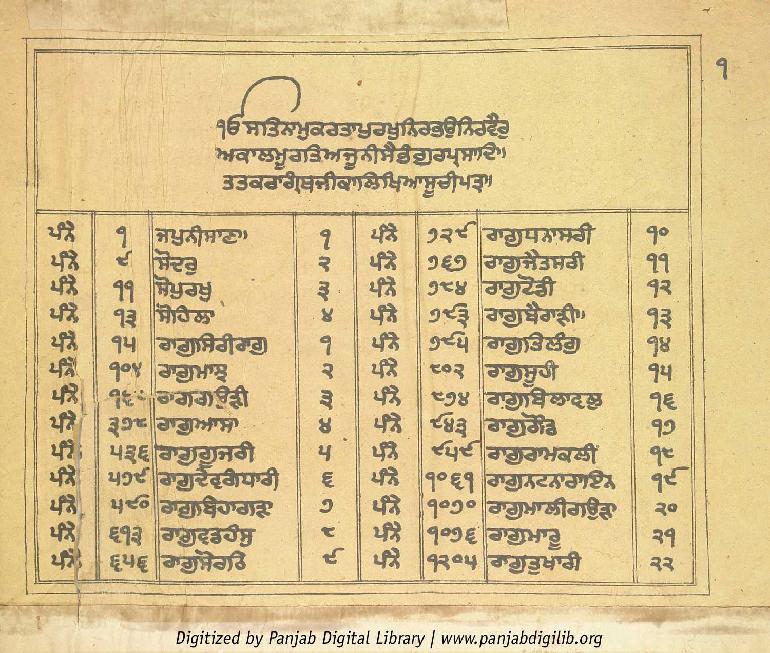 ੧
ੴ ਸਤਿਨਾਮੁਕਰਤਾਪੁਰਖੁਨਿਰਭਉਨਿਰਵੈਰੁ
ਅਕਾਲਮੂਰਤਿਅਜੂਨੀਸੈਭੰਗੁਰਪ੍ਰਸਾਦਿ॥
ਤਤਕਰਾ
ਪੰਨੇ ੧ ਜਪੁਨੀਸਾਣ॥ ੧ ਪੰਨੇ ੭੨੯ ਰਾਗੁਧਨਾਸਰੀ ੧੦
ਪੰਨੇ ੯ ਸੋਦਰੁ ੨ ਪੰਨੇ ੭੬੭ ਰਾਗੁਜੈਤਸਰੀ ੧੧
ਪੰਨੇ ੧੧ ਸੋਪੁਰਖੁ ੩ ਪੰਨੇ ੭੮੪ ਰਾਗੁਟੋਡੀ ੧੨
ਪੰਨੇ ੧੩ ਸੋਹਿਲਾ ੪ ਪੰਨੇ ੭੯੩ ਰਾਗੁਬੈਰਾੜੀ॥ ੧੩
ਪੰਨੇ ੧੫ ਰਾਗੁਸਿਰੀਰਾਗੁ ੧ ਪੰਨੇ ੭੯੫ ਰਾਗੁਤਿਲੰਗੁ ੧੪
ਪੰਨੇ ੧੦੪ ਰਾਗੁਮਾਝ ੨ ਪੰਨੇ ੮੦੨ ਰਾਗੁਸੂਹੀ ੧੫
ਪੰਨੇ ਰਾਗੁਗਉੜੀ ੩ ਪੰਨੇ ੮੭੪ ਰਾਗੁਬਿਲਾਵਲੁ ੧੬
ਪੰਨੇ ੩੭੮ ਰਾਗੁਆਸਾ ੪ ਪੰਨੇ ੯੪੩ ਰਾਗੁਗੋਂਡ ੧੭
ਪੰਨੇ ੫੩੬ ਰਾਗੁਗੂਜਰੀ ੫ ਪੰਨੇ ੯੫੯ ਰਾਗੁਰਾਮਕਲੀ ੧੮
ਪੰਨੇ ੫੭੯ ਰਾਗੁਦੇਵਗੰਧਾਰੀ ੬ ਪੰਨੇ ੧੦੬੧ ਰਾਗੁਨਟਨਾਰਾਇਨ ੧੯
ਪੰਨੇ ੫੯੦ ਰਾਗੁਬਿਹਾਗੜਾ ੭ ਪੰਨੇ ੧੦੭੦ ਰਾਗੁਮਾਲੀਗਉੜਾ ੨੦
ਪੰਨੇ ੬੧੩ ਰਾਗੁਵਡਹੰਸੁ ੮ ਪੰਨੇ ੧੦੭੬ ਰਾਗੁਮਾਰੂ ੨੧
ਪੰਨੇ ੬੫੬ ਰਾਗੁਸੋਰਠਿ ੯ ਪੰਨੇ ੧੨੦੫ ਰਾਗੁਤੁਖਾਰੀ ੨੨
Digitized by Panjab Digital Library | www.panjabdigilib.org